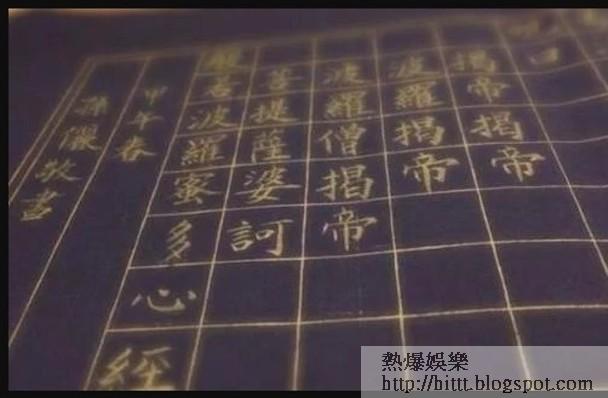 揭帝揭帝
波羅揭帝
波羅僧揭帝
菩提薩婆訶
般若波羅蜜多心經
甲午春
孫儷敬書
熱爆娛樂
http://hittt.blogspot.com